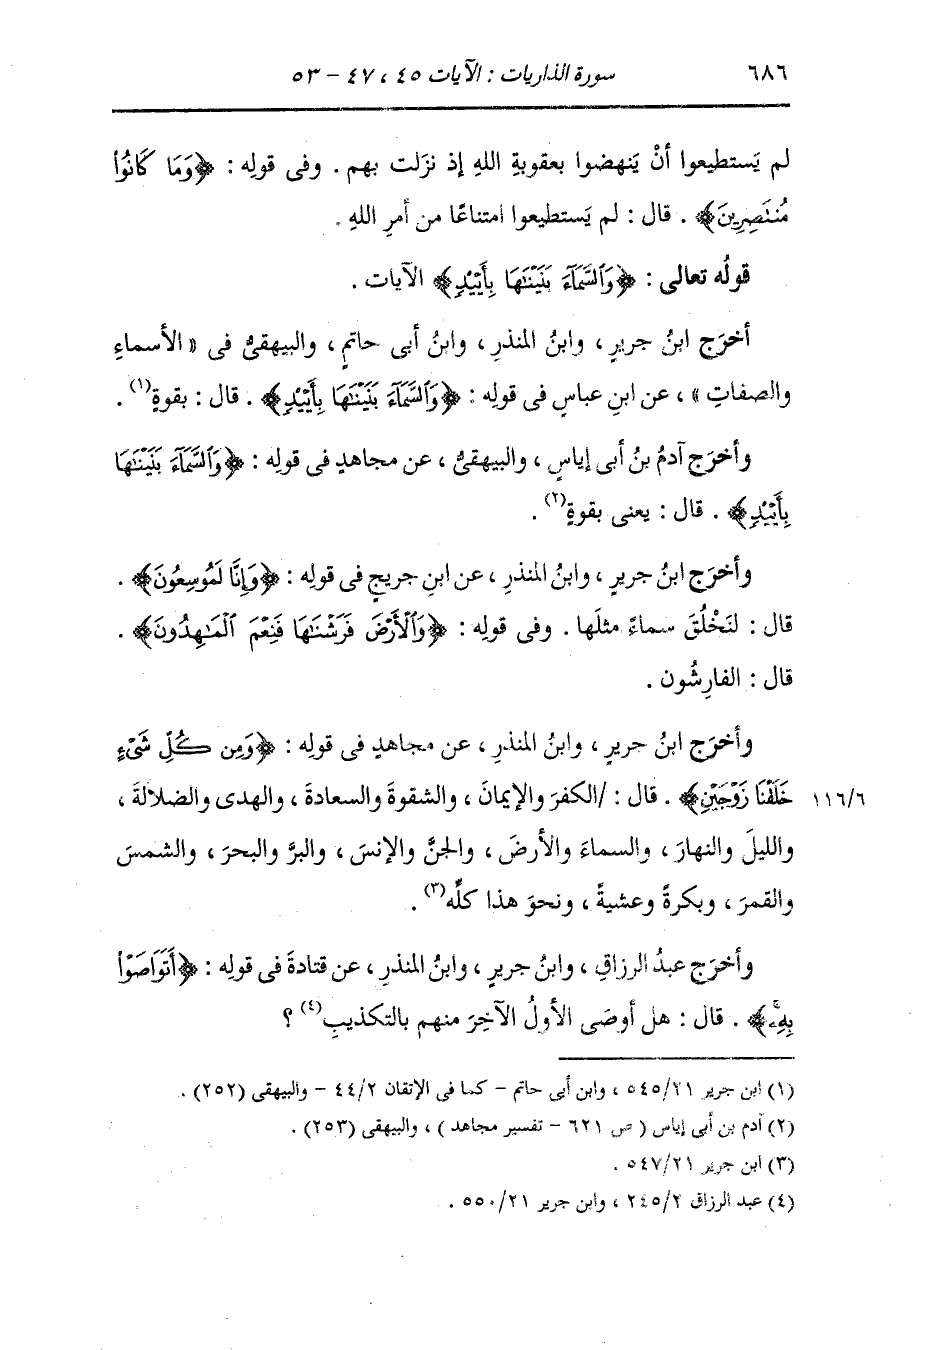 ٦٨٦
سورة الذاريات : الآيات ٤٥ ، ٤٧ - ٥٣
لم يَستطيعوا أنْ يَنهضوا بعقوبةِ اللهِ إذ نزَلت بهم . وفى قولِه : ﴿وَمَا كَانُواْ
مُنتَصِرِينَ﴾ . قال : لم يَستطيعوا امتناعًا من أمرِ اللهِ .
قولُه تعالى : ﴿وَٱلسَّمَآءَ بَنَيْنَٰهَا بِأَيْيْدٍ﴾ الآيات .
أخرَج ابنُ جريرٍ ، وابنُ المنذرِ ، وابنُ أبى حاتمٍ ، والبيهقىُّ فى « الأسماءِ
والصفاتِ » ، عن ابنِ عباسٍ فى قولِه : ﴿وَٱلسَّمَآءَ بَنَيْنَٰهَا بِأَيْيْدٍ﴾ . قال : بقوةٍ(١) .
وأخرَج آدمُ بنُ أبى إياسٍ ، والبيهقىُّ ، عن مجاهدٍ فى قولِه : ﴿وَٱلسَّمَآءَ بَنَيْنَٰهَا
بِأَيْيْدٍ﴾ . قال : يعنى بقوةٍ(٢) .
وأخرَج ابنُ جريرٍ ، وابنُ المنذرِ ، عن ابنِ جريجٍ فى قولِه : ﴿وَإِنَّا لَمُوسِعُونَ﴾ .
قال : لنَخْلُقَ سماءً مثلَها . وفى قولِه : ﴿وَٱلْأَرْضَ فَرَشْنَٰهَا فَنِعْمَ ٱلْمَٰهِدُونَ﴾ .
قال : الفارِشُون .
وأخرَج ابنُ جريرٍ ، وابنُ المنذرِ ، عن مجاهدٍ فى قولِه : ﴿وَمِن كُلِّ شَىْءٍ
خَلَقْنَا زَوْجَيْنِ﴾ . قال : /الكفرَ والإيمانَ ، والشقوةَ والسعادةَ ، والهدى والضلالةَ ،
١١٦/٦
والليلَ والنهارَ ، والسماءَ والأرضَ ، والجنَّ والإنسَ ، والبرَّ والبحرَ ، والشمسَ
والقمرَ ، وبكرةً وعشيةً ، ونحوَ هذا كلِّه(٣) .
وأخرَج عبدُ الرزاقِ ، وابنُ جريرٍ ، وابنُ المنذرِ ، عن قتادةَ فى قولِه : ﴿أَتَوَاصَوْاْ
بِهِۦۚ﴾ . قال : هل أوصَى الأولُ الآخِرَ منهم بالتكذيبِ(٤) ؟
(١) ابن جرير ٥٤٥/٢١ ، وابن أبى حاتم - كما فى الإتقان ٤٤/٢ - والبيهقى (٢٥٢) .
(٢) آدم بن أبى إياس ( ص ٦٢١ - تفسير مجاهد ) ، والبيهقى (٢٥٣) .
(٣) ابن جرير ٥٤٧/٢١ .
(٤) عبد الرزاق ٢٤٥/٢ ، وابن جرير ٥٥٠/٢١ .